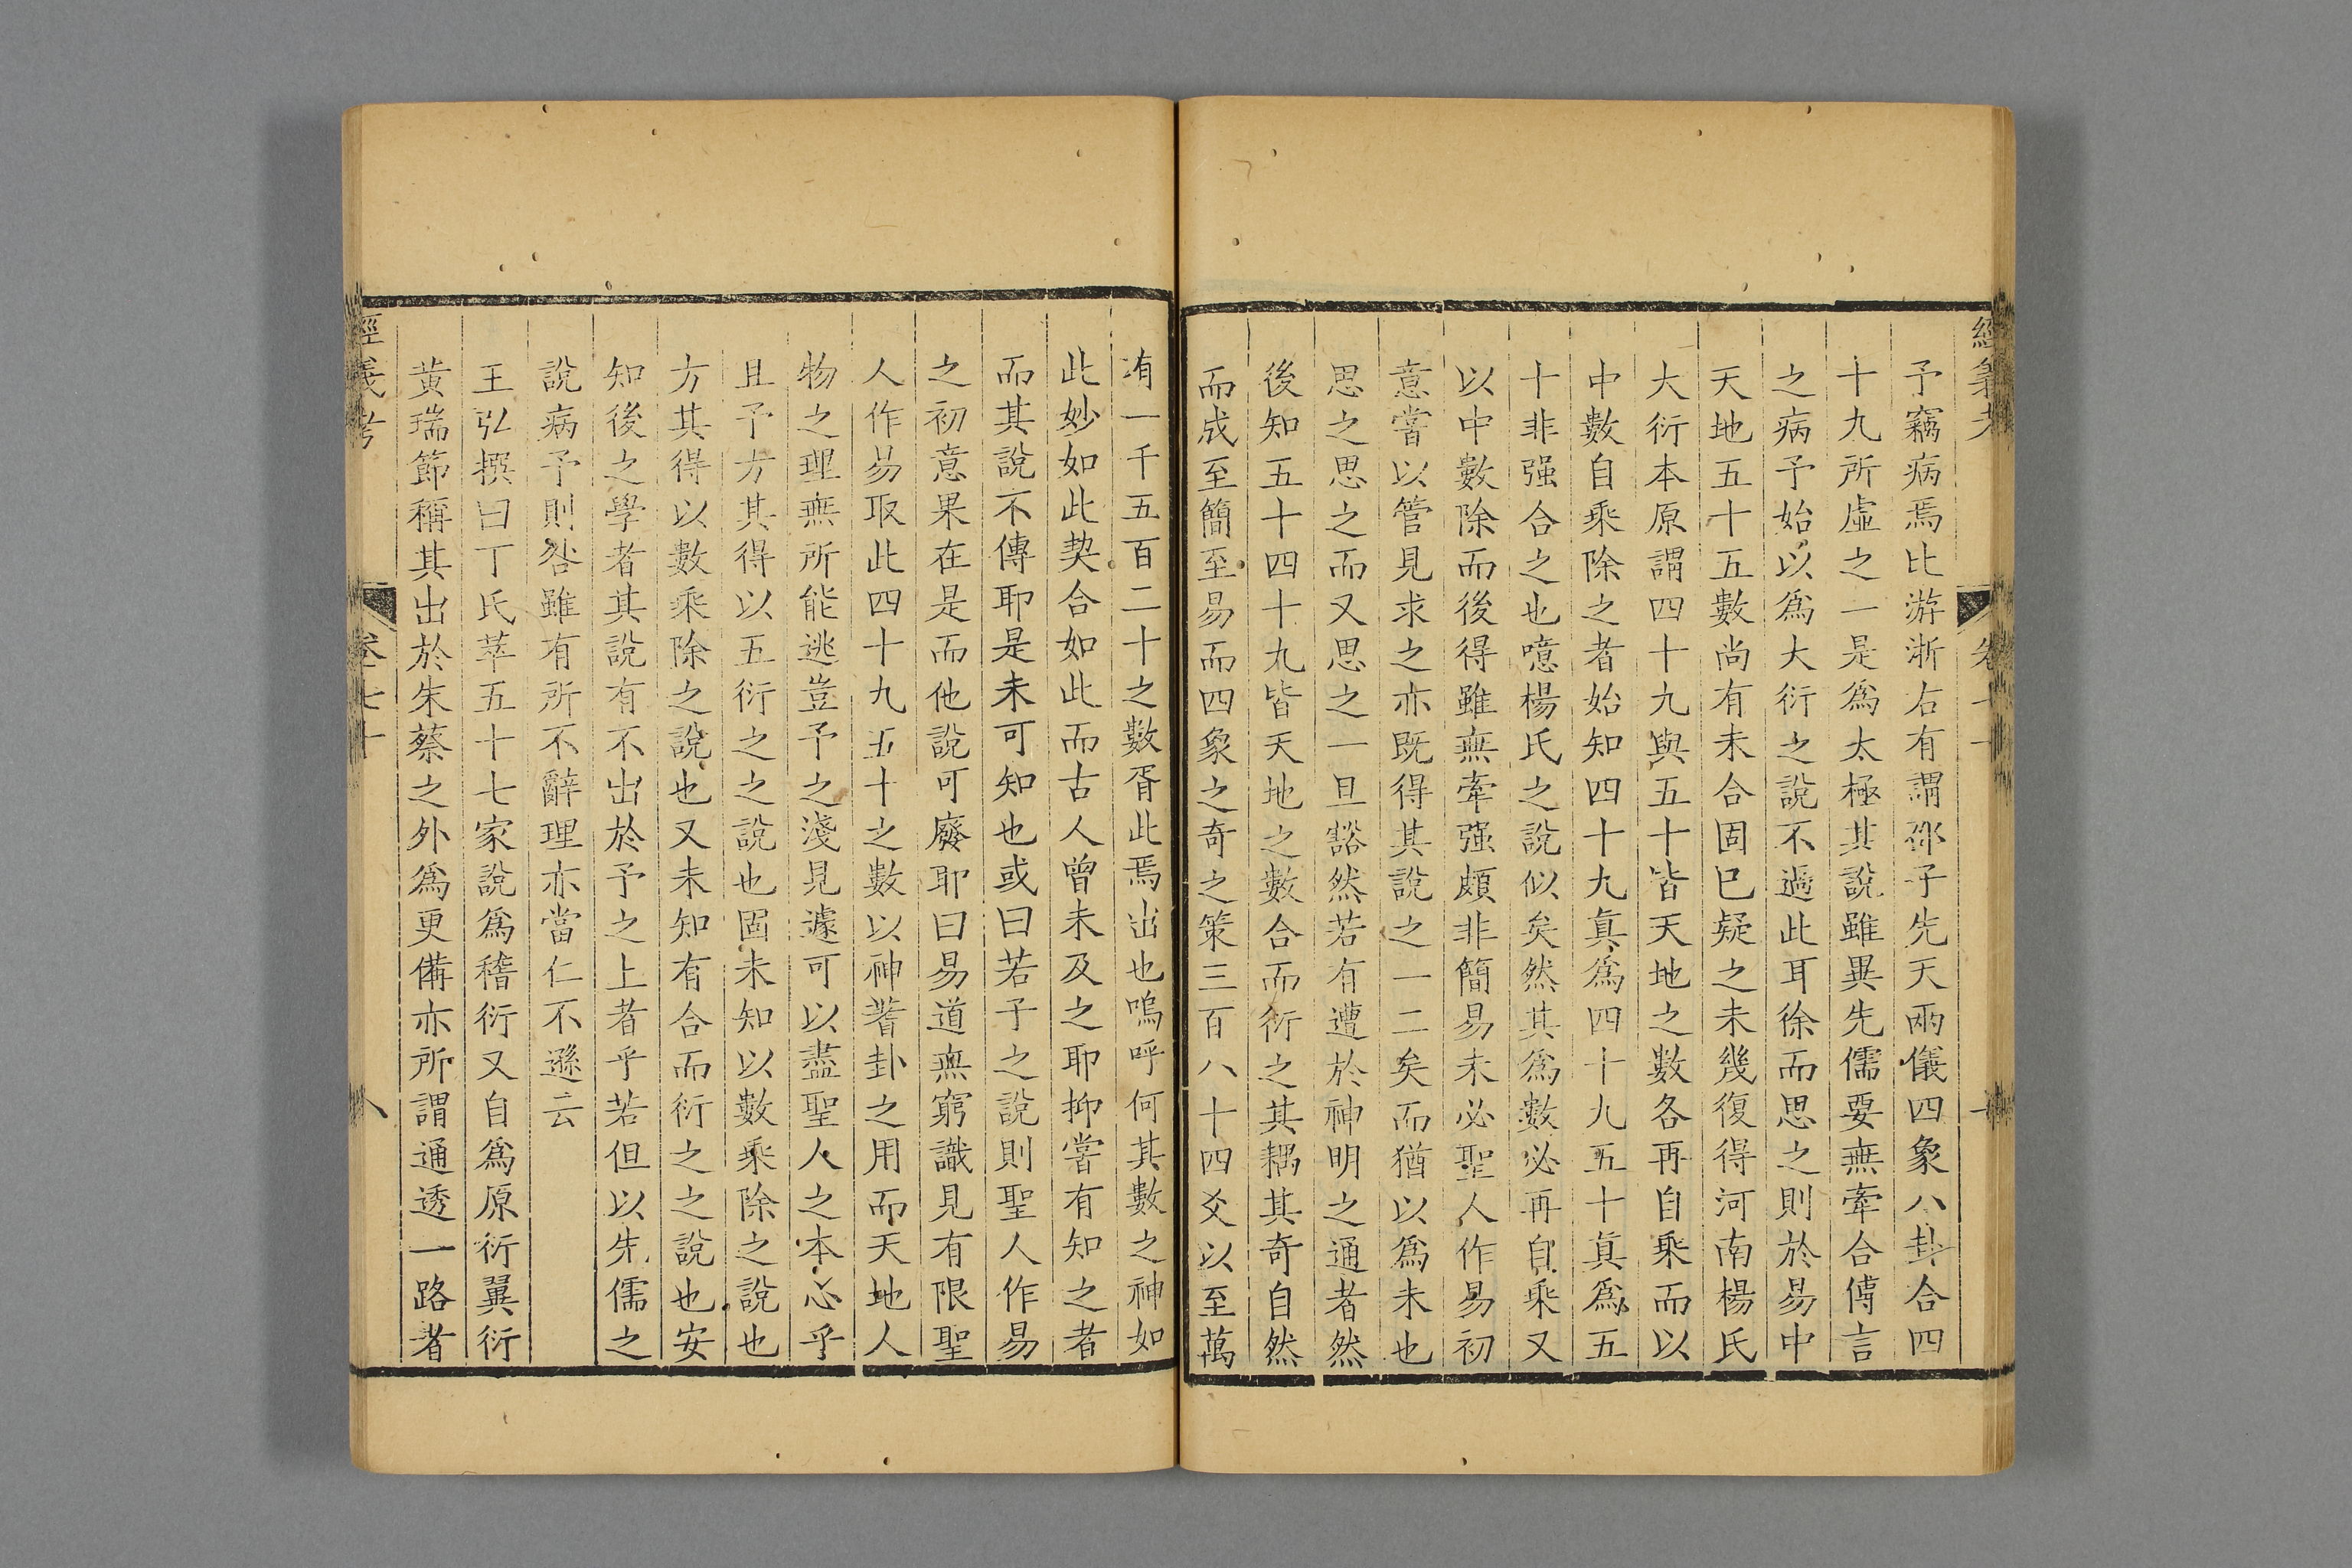 予竊病焉比游浙右有謂邵子先天兩儀四象八卦合四
十九所虛之一是爲太極其說雖異先儒要無牽合傅言
之病予始以爲大衍之說不過此耳徐而思之則於易中
天地五十五數尚有未合固已疑之未幾復得河南楊氏
大衍本原謂四十九與五十皆天地之數各再自乘而以
中數自乘除之者始知四十九真爲四十九五十真爲五
十非强合之也噫楊氏之說似矣然其爲數必再自乘又
以中數除而後得雖無牽强頗非簡易未必聖人作易初
意嘗以管見求之亦既得其說之一二矣而猶以爲未也
思之思之而又思之一旦豁然若有遭於神明之通者然
後知五十四十九皆天地之數合而衍之其耦其奇自然
而成至簡至易而四象之奇之策三百八十四爻以至萬
有一千五百二十之數胥此焉出也嗚呼何其數之神如
此妙如此契合如此而古人曾未及之耶抑嘗有知之者
而其說不傳耶是未可知也或曰若子之說則聖人作易
之初意果在是而他說可廢耶曰易道無窮識見有限聖
人作易取此四十九五十之數以神蓍卦之用而天地人
物之理無所能逃豈予之淺見遽可以盡聖人之本心乎
且予方其得以五衍之之說也固未知以數乘除之說也
方其得以數乘除之說也又未知有合而衍之之說也安
知後之學者其說有不出於予之上者乎若但以先儒之
說病予則咎雖有所不辭理亦當仁不遜云
王弘撰曰丁氏萃五十七家說爲稽衍又自爲原衍翼衍
黄瑞節稱其出於朱蔡之外爲更備亦所謂通透一路者
經義考
卷七十
八